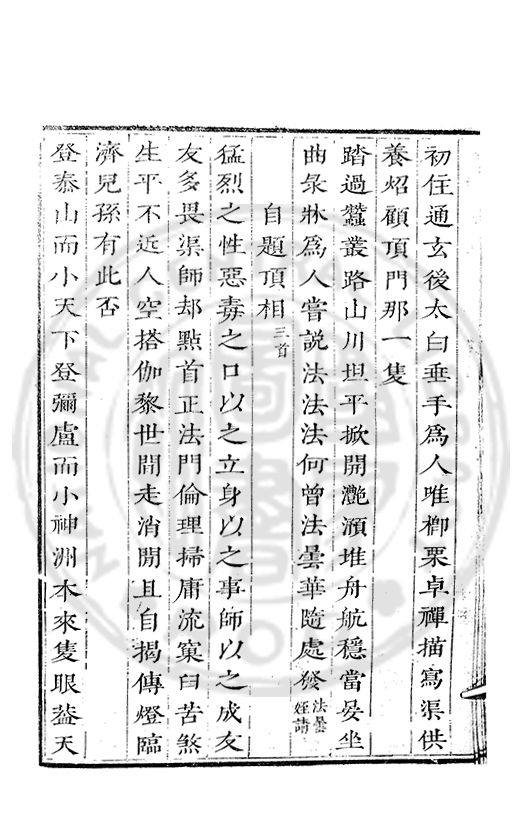 初住通玄後太白垂手為人唯楖栗卓禪描寫渠供
養炤顧頂門那一隻
踏過蠶叢路山川坦平掀開灔澦堆舟航穩當晏坐
曲彔牀為人嘗說法法法何曾法曇華隨處發法曇姪請
自題頂相三首
猛烈之性惡毒之口以之立身以之事師以之成友
友多畏渠師却點首正法門倫理掃庸流窠臼苦煞
生平不近人空搭伽黎世間走消閒且自揭傳燈臨
濟兒孫有此否
登泰山而小天下登彌盧而小神洲本來隻眼蓋天